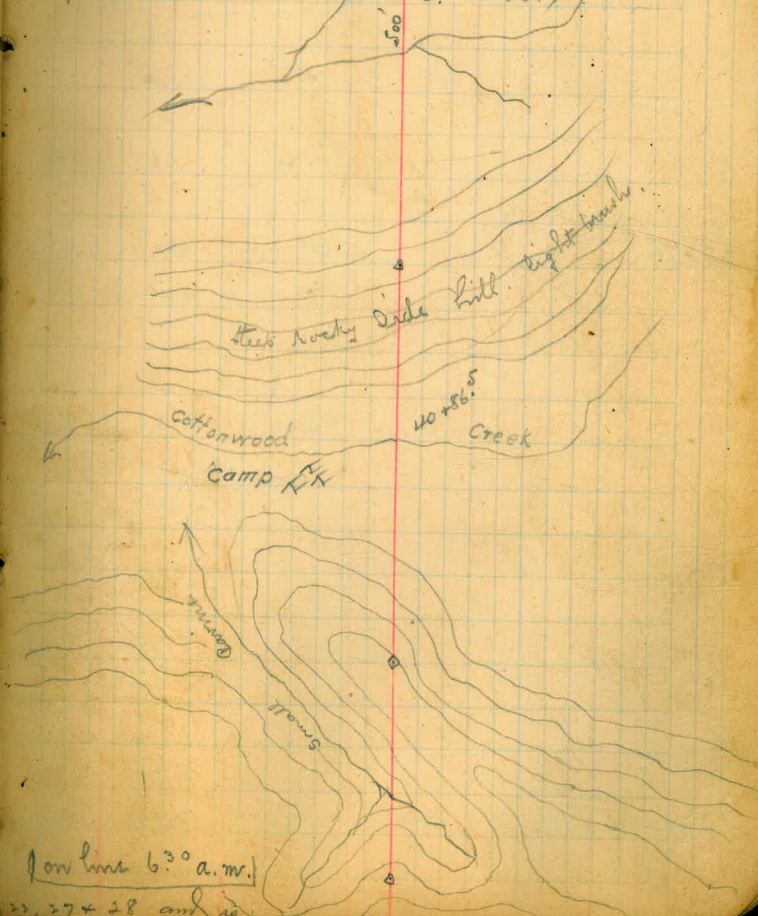 500'
Steep rocky side hill. light brush.
40+86.5
Cottonwood Creek
Camp
Small Ravine
(on line 6:30 a.m.)
22, 27 & 28 and